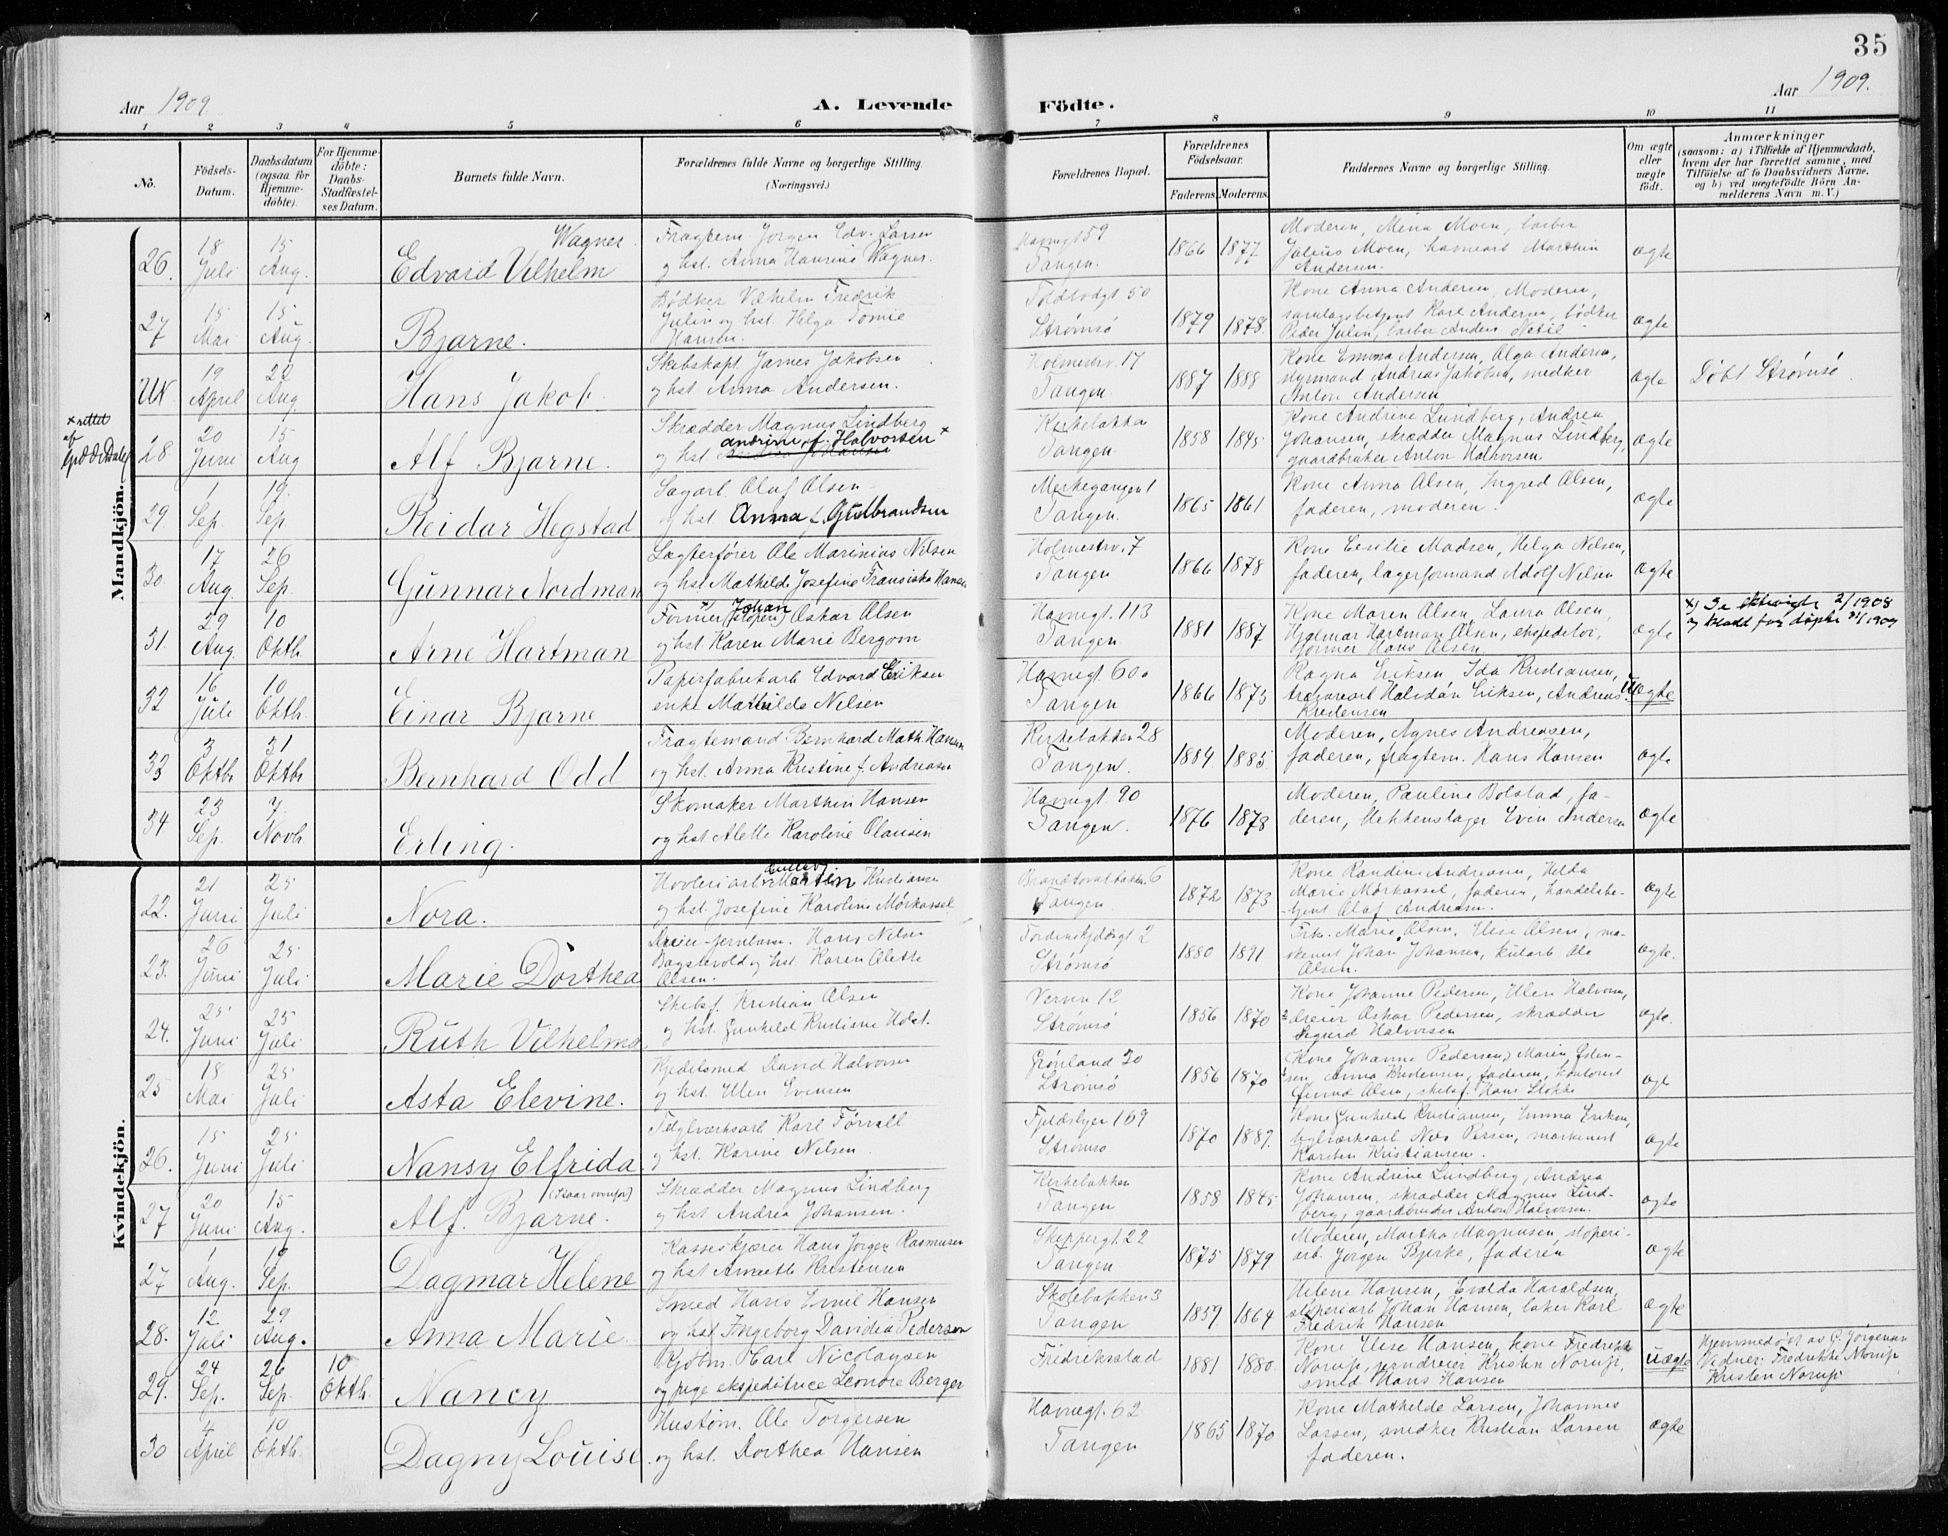 35
Aar 1909. A. Levende Födte. Aar 1909.
1 2 3 4 5 6 7 8 9 10 11
No. Födsels-Datum. Daabsdatum (ogsaa for Hjemmedöbte). For Hjemmedöbte: Daabs-Stadfæstelses Datum. Barnets fulde Navn. Forældrenes fulde Navne og borgerlige Stilling. (Næringsvei.) Forældrenes Bopæl. Forældrenes Födselsaar. Faderens. Moderens. Faddernes Navne og borgerlige Stilling. Om ægte eller uægte födt. Anmærkninger (saasom: a) i Tilfælde af Hjemmedaab, hvem der har forrettet samme, med Tilföielse af to Daabsvidners Navne, og b) ved uægtefödte Börn Anmelderens Navn m. V.)
Mandkjön.
26. 18 Juli 15 Aug. Edvard Vilhelm Wagner. Fragtem. Jørgen Edv. Larsen og hst. Anna Laurine Wagner. Havnegt 59 Tangen. 1866 1877 Moderen, Mina Moen, barber Julius Moen, havnearb Marthin Andersen. ægte
27 15 Mai 15 Aug. Bjarne. Bødker Vilhelm Fredrik Julin og hst. Helga Tomie Hansen. Toldbodgt 50 Strømsø 1879 1878. Kone Anna Andersen, Moderen, samlagsbetjent Karl Andersen, bødker Peder Julin, barber Anders ægte
UN 19 April 22 Aug Hans Jakob. Skibskapt. James Jakobsen og hst Anna Andersen. Holmestrv. 17 Tangen. 1887 1888 Kone Emma Andersen, Olga Andersen, styrmand Andreas Jakobsen, snedker Anton Andersen ægte Døbt Strømsø.
× rettet af
28. 20 Juni 15 Aug Alf Bjarne. Skrædder Magnus Lindberg og hst Andrine f. Halvorsen × Kirkebakken Tangen. 1858 1845 Kone Andrine Lundberg, Andrea Johansen, skrædder Magnus Lindberg, gaardbruker Anton Halvorsen ægte
29 1 Sep. 19. Sep. Reidar Hegstad Sagarb. Olaf Olsen og hst. Anna f. Gulbrandsen Merkegangen 1 Tangen. 1865 1861 Kone Anna Olsen, Ingrid Olsen, faderen, moderen. ægte
30. 17 Aug 26 Sep. Gunnar Nordman Lægterfører Ole Marinius Nilsen og hst. Mathilde Josefine Fransiska Hansen Holmestrv. 7 Tangen 1866 1878 Kone Cesilie Madsen, Helga Nilsen, faderen, lagerformand Adolf Nilsen ægte
31. 29 Aug 10 Oktb. Arne Hartman Former (støperi) Johan Oskar Olsen og hst Karen Marie Bergom Havnegt. 113 Tangen 1881 1887 Kone Maren Olsen, Laura Olsen, Hjalmar Hartman Olsen, ekspeditør, former Hans Olsen. ægte ×) Se 2/1908 og kladd for døpte 1909
32 16 Juli 10 Oktb. Einar Bjarne Papirfabrikarb Edvard Eriksen enke Mathilde Nilsen Havnegt. 60a Tangen 1866 1873 Ragna Eriksen Ida Kristiansen, travarearb Halvdan Eriksen, Andreas Kristensen Uægte
33 3 Oktb 31 Oktb Bernhard Odd Fragtemand Bernhard Math. Hansen og hst. Anna Kristine f. Andreasen Kirkebakken 28 Tangen. 1884 1885 Moderen, Agnes Andreasen, faderen, fragtem. Hans Hansen ægte
34 23 Sep. 7 Novb Erling. Skomaker Marthin Hansen og hst Alette Karoline Olausen Havnegt. 90 Tangen. 1876 1878 Moderen, Pauline Bolstad, faderen, blekkenslager Even Andersen ægte
Kvindekjön.
22. 21 Juni 25 Juli Nora. Høvleriarb. Martin Kristiansen og hst. Josefine Karoline Mørkassel 6 Tangen 1872 1873 Kone Randine Andreasen, Helda Marie Mørkassel, faderen, handelsbetjent Olaf Andreasen. ægte
23. 26 Juni 25 Juli Marie Dorthea Hans Nilsen og hst Karen Alette Olsen. Tordenskjoldsgt 2 Strømsø 1880 1891 Frk. Marie Olsen, Else Olsen, maskinist Johan Johansen, kularb Ole Olsen. ægte.
24. 25 Juni 25 Juli Ruth Vilhelma Skibsf. Kristian Olsen og hst. Gunhild Kristine Holst. Verven 12 Strømsø 1856 1870 Kone Johanne Pedersen, Ulen Halvorsen, dreier Oskar Pedersen, skrædder Sigurd Halvorsen ægte.
25 18 Mai 25 Juli Asta Elevine. Kjedelsmed David Halvorsen og hst. Ulen Evensen Grønland 30 Strømsø 1856 1870 Kone Johanne Pedersen, Maren Anna Kristensen, faderen, kontorist Olsen, skibsf. Hans Stokke ægt
26. 15 Juni 25 Juli Nansy Elfrida. Teglverksarb Karl Førvall og hst. Karine Nilsen. Fjeldsbyen 169 Strømsø 1870 1889. Kone Gunhild Kristiansen, Emma Eriksen, teglværksarb Nils Persen, maskinist Karsten Kristiansen. ægte
27 20 Juni 15 Aug. Alf. Bjarne. Skrædder Magnus Lindberg og hst Andrea Johansen. Kirkebakken Tangen 1858 1845 Kone Andrine Lundberg, Andrea Johansen, skrædder Magnus Lindberg, gaardbruker Anton Halvorsen. ægte
27 1 Aug. 19 Sep. Dagmar Helene Kasseskjærer Hans Jørgen Rasmusen og hst Annette Kristensen Skippergt. 22 Tangen 1875 1879 Moderen, Martha Magnusen, støperiarb Jørgen Bjerke, faderen ægte
28. 12 Juli 29 Aug. Anna Marie. Smed Hans Emil Hansen og hst Ingeborg Davidia Pedersen Skolebakken 3 Tangen 1859 1864 Helene Hansen, Evalda Haraldsen, støperiarb Johan Hansen, baker Karl Fredrik Hansen ægte
29. 24 Sep. 26 Sep. 10 Oktb. Nancy Kjøbm. Carl Nicolaysen og pige ekspeditrice Leonore Berger Fredriksstad 1881 1880. Kone Else Hansen, kone Fredrikke Norup, jerndreier Kristen Norup, smed Hans Hansen uægte Hjemmedøbt av C. Jørgensen Vidner: Fredrikke Norup Kristen Norup
30 4 April 10 Oktb. Dagny Louise. Hustøm. Ole Torgersen og hst. Dorthea Hansen Havnegt. 62 Tangen 1865 1870 Kone Mathilde Larsen, Johannes Larsen, snedker Kristian Larsen faderen. ægte